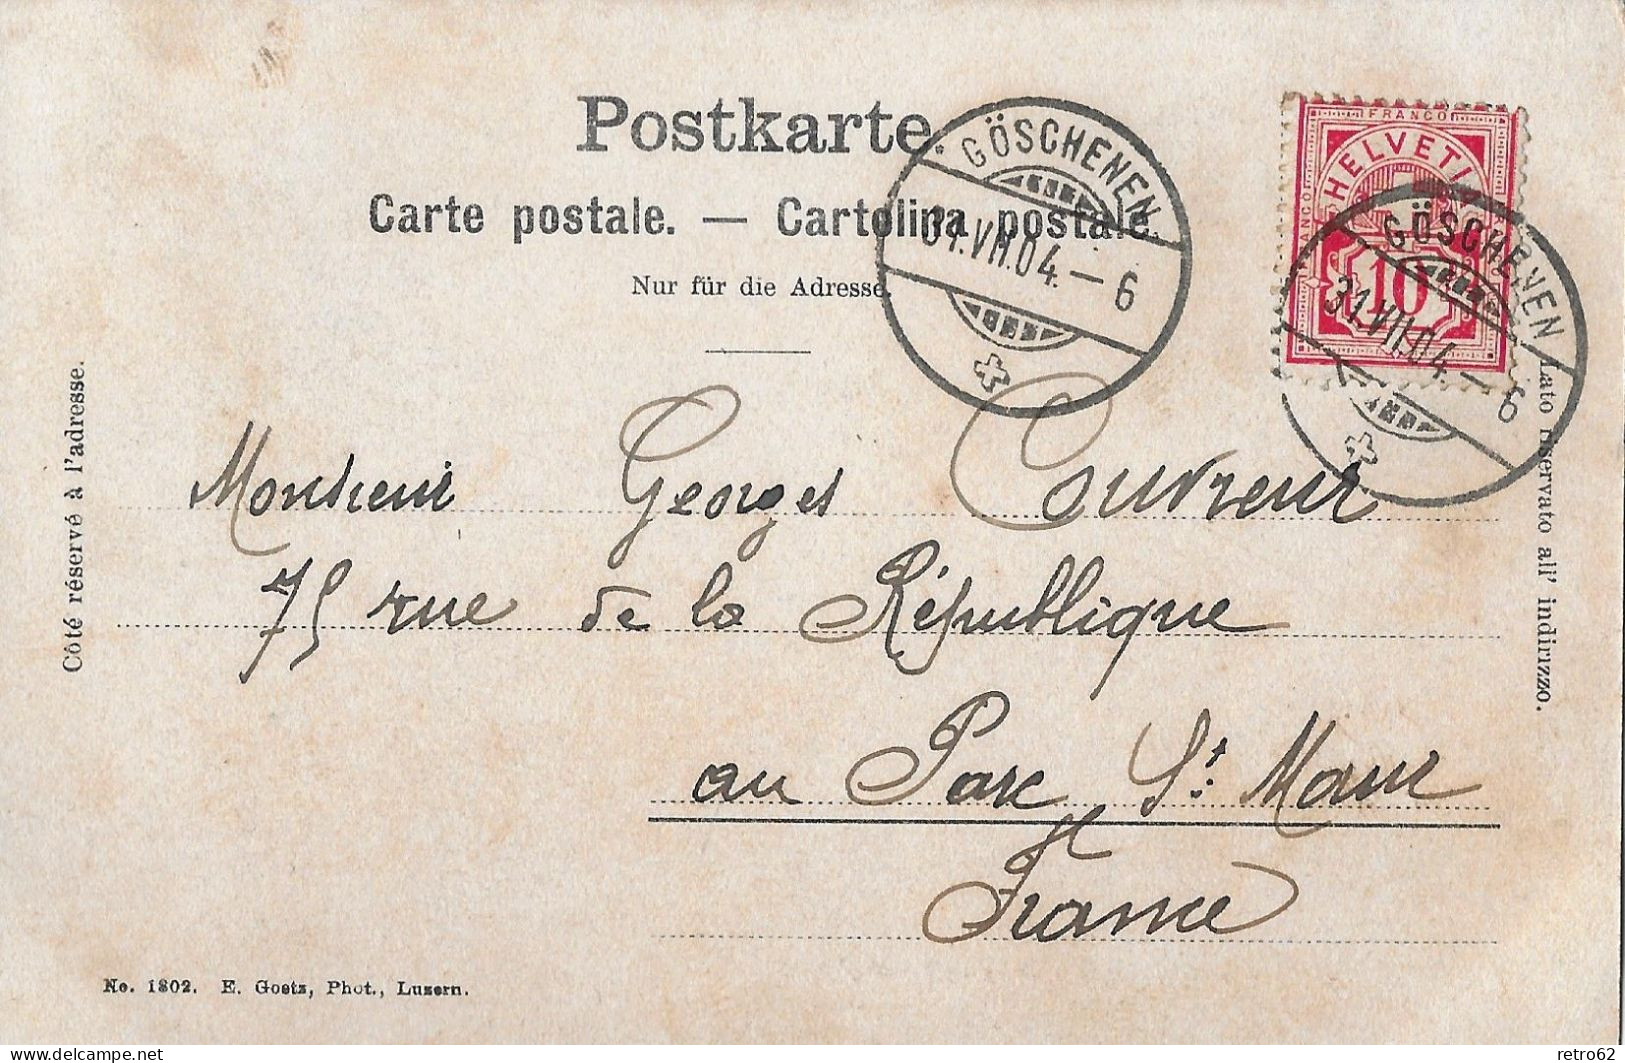 Postkarte.
Carte postale. — Cartolina postale.
Nur für die Adresse.
GÖSCHENEN
31.VII.04.–6
FRANCO
HELVETIA
FRANCO
10
GÖSCHENEN
31.VII.04.–6
Côté réservé à l'adresse.
Lato riservato all' indirizzo.
Monsieur Georges Couvreur
75 rue de la République
au Parc St. Maur
France
No. 1802. E. Goetz, Phot., Luzern.
delcampe.net
retro62